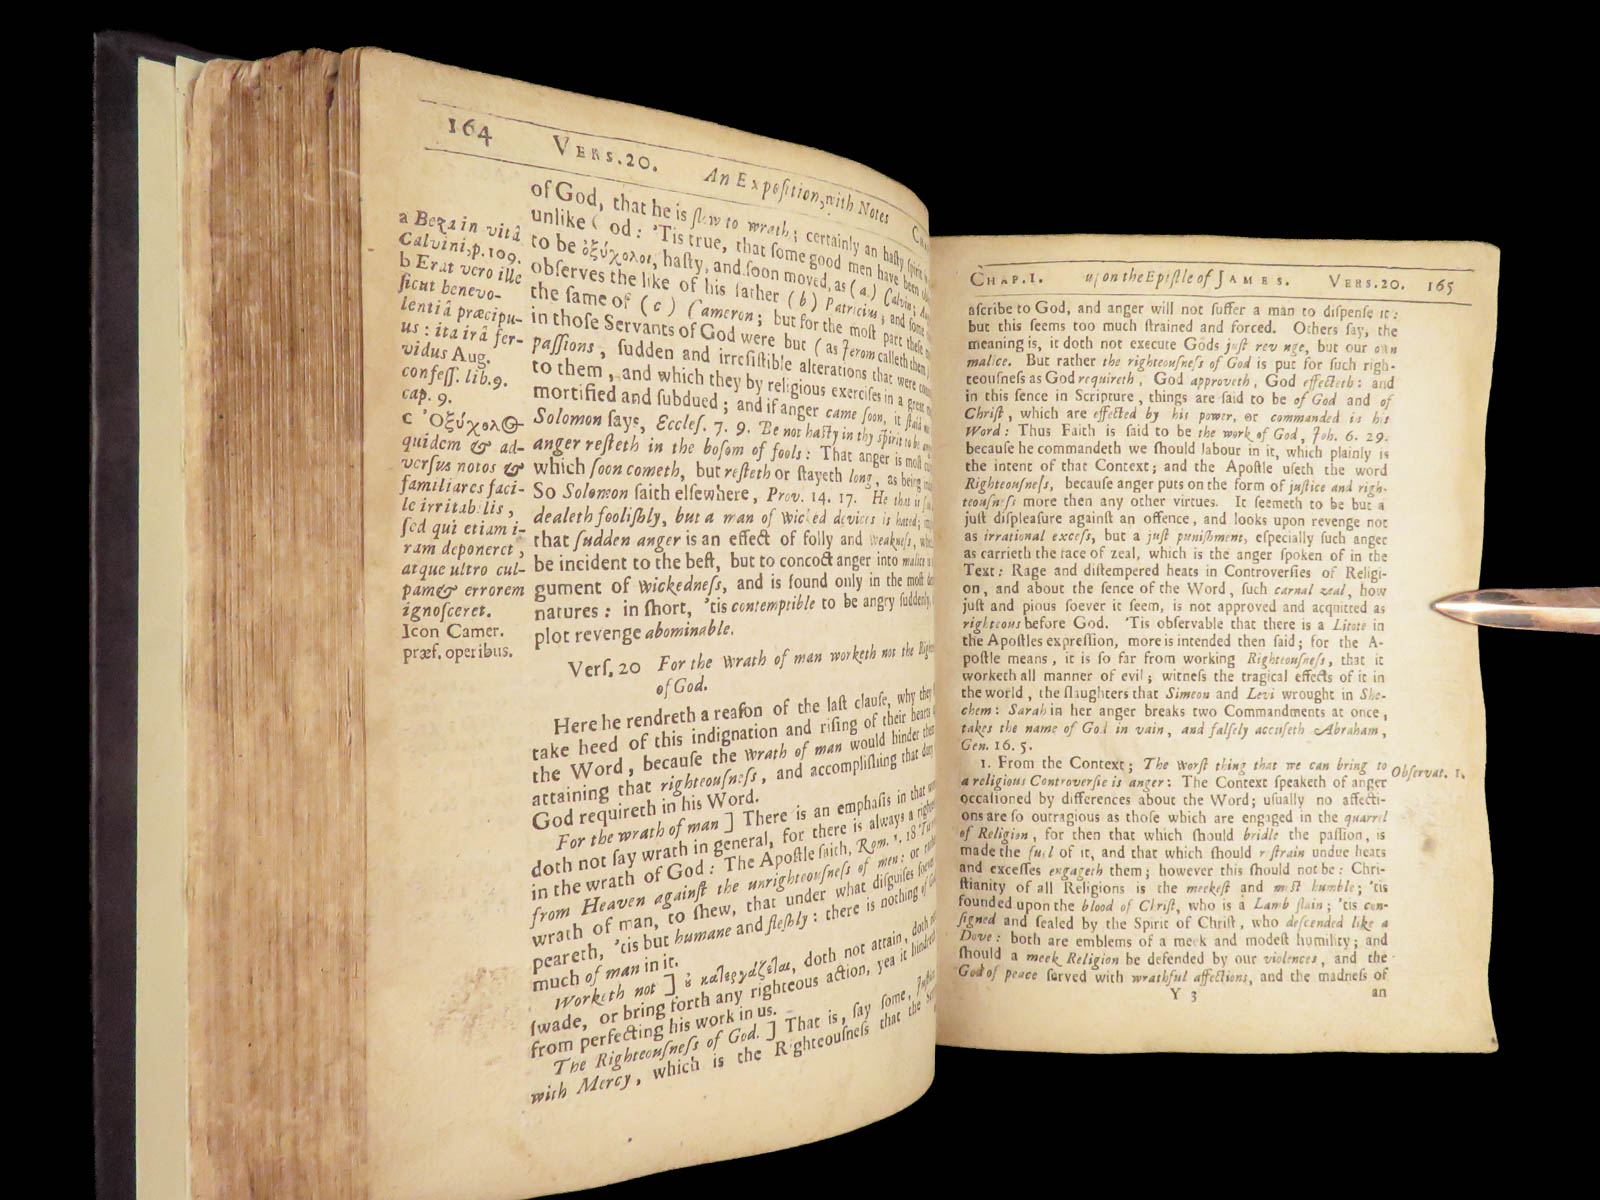 164 VERS.20. An Expoſition, with Notes
a Beza in vitâ
Calvini, p. 109.
b Erat vero ille
ſicut benevo-
lentiâ præcipu-
us : ita irâ fer-
vidus Aug.
confeſſ. lib.9.
cap. 9.
c Ὀξύχολ
quidem & ad-
verſus notos &
familiares faci-
le irritabilis,
ſed qui etiam i-
ram deponeret,
atque ultro cul-
pam & errorem
ignoſceret.
Icon Camer.
præf. operibus.
of God, that he is ſlow to wrath; certainly an haſty ſpirit is
unlike od: 'Tis true, that ſome good men have been
to be ὀξύχολοι, haſty, and ſoon moved, as (a) Calvin;
obſerves the like of his father (b) Patricius; and ſome
the ſame of (c) Cameron; but for the moſt part theſe
in thoſe Servants of God were but (as Jerom calleth them)
paſſions, ſudden and irreſiſtible alterations that were
to them, and which they by religious exerciſes in a great
mortified and ſubdued; and if anger came ſoon, it ſtaid
Solomon ſays, Eccleſ. 7. 9. Be not haſty in thy ſpirit to be
anger reſteth in the boſom of fools: That anger is moſt
which ſoon cometh, but reſteth or ſtayeth long, as being
So Solomon ſaith elſewhere, Prov. 14. 17. He that is
dealeth fooliſhly, but a man of wicked devices is hated;
that ſudden anger is an effect of folly and weakneſs,
be incident to the beſt, but to concoct anger into malice
gument of wickedneſs, and is found only in the moſt
natures: in ſhort, 'tis contemptible to be angry ſuddenly,
plot revenge abominable.
Verſ. 20 For the Wrath of man worketh not the
of God.
Here he rendreth a reaſon of the laſt clauſe, why they
take heed of this indignation and riſing of their hearts
the Word, becauſe the wrath of man would hinder
attaining that righteouſneſs, and accompliſhing that duty
God requireth in his Word.
For the wrath of man ] There is an emphaſis in that
doth not ſay wrath in general, for there is always a
in the wrath of God: The Apoſtle ſaith, Rom. 1. 18
from Heaven againſt the unrighteouſneſs of men: or
wrath of man, to ſhew, that under what diſguiſes ſoever
peareth, 'tis but humane and fleſhly: there is nothing of
much of man in it.
Worketh not ] ὐ κατεργάζεται, doth not attain, doth
ſwade, or bring forth any righteous action, yea it
from perfecting his work in us.
The Righteouſneſs of God. ] That is, ſay ſome,
with Mercy, which is the Righteouſneſs that the
CHAP.I. upon the Epiſtle of JAMES. VERS.20. 165
aſcribe to God, and anger will not ſuffer a man to diſpenſe it:
but this ſeems too much ſtrained and forced. Others ſay, the
meaning is, it doth not execute Gods juſt rev nge, but our own
malice. But rather the righteouſneſs of God is put for ſuch righ-
teouſneſs as God requireth, God approveth, God effecteth: and
in this ſence in Scripture, things are ſaid to be of God and of
Chriſt, which are effected by his power, or commanded in his
Word: Thus Faith is ſaid to be the work of God, Joh. 6. 29.
becauſe he commandeth we ſhould labour in it, which plainly is
the intent of that Context; and the Apoſtle uſeth the word
Righteouſneſs, becauſe anger puts on the form of juſtice and righ-
teouſneſs more then any other virtues. It ſeemeth to be but a
juſt diſpleaſure againſt an offence, and looks upon revenge not
as irrational exceſs, but a juſt puniſhment, eſpecially ſuch anger
as carrieth the face of zeal, which is the anger ſpoken of in the
Text: Rage and diſtempered heats in Controverſies of Religi-
on, and about the ſence of the Word, ſuch carnal zeal, how
juſt and pious ſoever it ſeem, is not approved and acquitted as
righteous before God. 'Tis obſervable that there is a Litote in
the Apoſtles expreſſion, more is intended then ſaid; for the A-
poſtle means, it is ſo far from working Righteouſneſs, that it
worketh all manner of evil; witneſs the tragical effects of it in
the world, the ſlaughters that Simeon and Levi wrought in She-
chem: Sarah in her anger breaks two Commandments at once,
takes the name of God in vain, and falſely accuſeth Abraham,
Gen. 16. 5.
1. From the Context; The worſt thing that we can bring to
a religious Controverſie is anger: The Context ſpeaketh of anger
occaſioned by differences about the Word; uſually no affecti-
ons are ſo outragious as thoſe which are engaged in the quarrel
of Religion, for then that which ſhould bridle the paſſion, is
made the fuel of it, and that which ſhould reſtrain undue heats
and exceſſes engageth them; however this ſhould not be: Chri-
ſtianity of all Religions is the meekeſt and moſt humble; 'tis
founded upon the blood of Chriſt, who is a Lamb ſlain; 'tis con-
ſigned and ſealed by the Spirit of Chriſt, who deſcended like a
Dove: both are emblems of a meek and modeſt humility; and
ſhould a meek Religion be defended by our violences, and the
God of peace ſerved with wrathful affections, and the madneſs of
Y 3 an
Obſervat. 1.